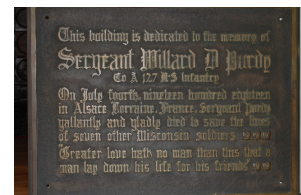 This building is dedicated to the memory of
Sergeant Willard D Purdy
Co A 127 U·S Infantry
On July fourth, nineteen hundred eighteen
in Alsace Lorraine, France, Sergeant Purdy
gallantly and gladly died to save the lives
of seven other Wisconsin soldiers
"Greater love hath no man than this that a
man lay down his life for his friends"